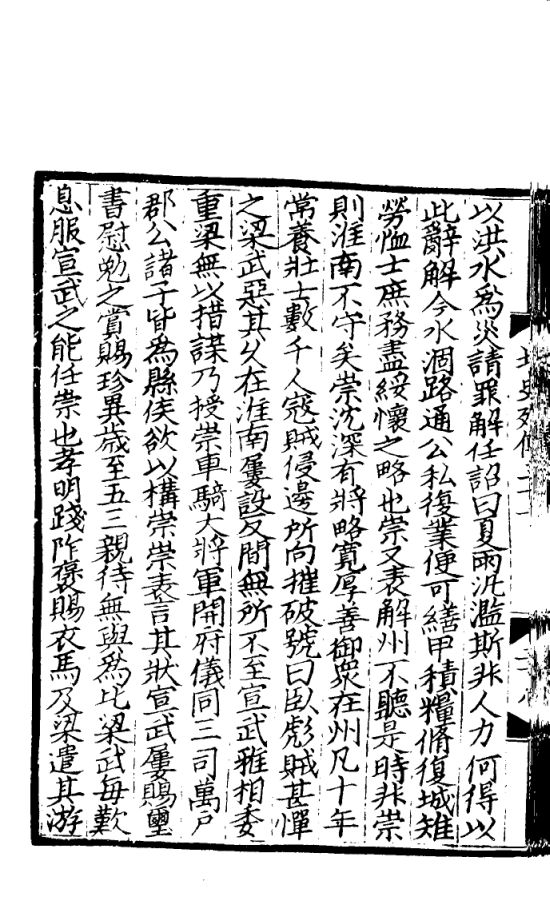 以洪水爲災請罪解任詔曰夏雨汎濫斯非人力何得以
此辭解今水涸路通公私復業便可繕甲積糧脩復城雉
勞恤士庶務盡綏懷之略也崇又表解州不聽是時非崇
則淮南不守矣崇沈深有將略寬厚善御衆在州凡十年
常養壯士數千人寇賊侵邊所向摧破號曰臥彪賊甚憚
之梁武惡其久在淮南屢設反間無所不至宣武雅相委
重梁無以措謀乃授崇車騎大將軍開府儀同三司萬户
郡公諸子皆爲縣侯欲以構崇崇表言其狀宣武屢賜璽
書慰勉之賞賜珍異歲至五三親待無與爲比梁武每歎
息服宣武之能任崇也孝明踐阼襃賜衣馬及梁遣其游